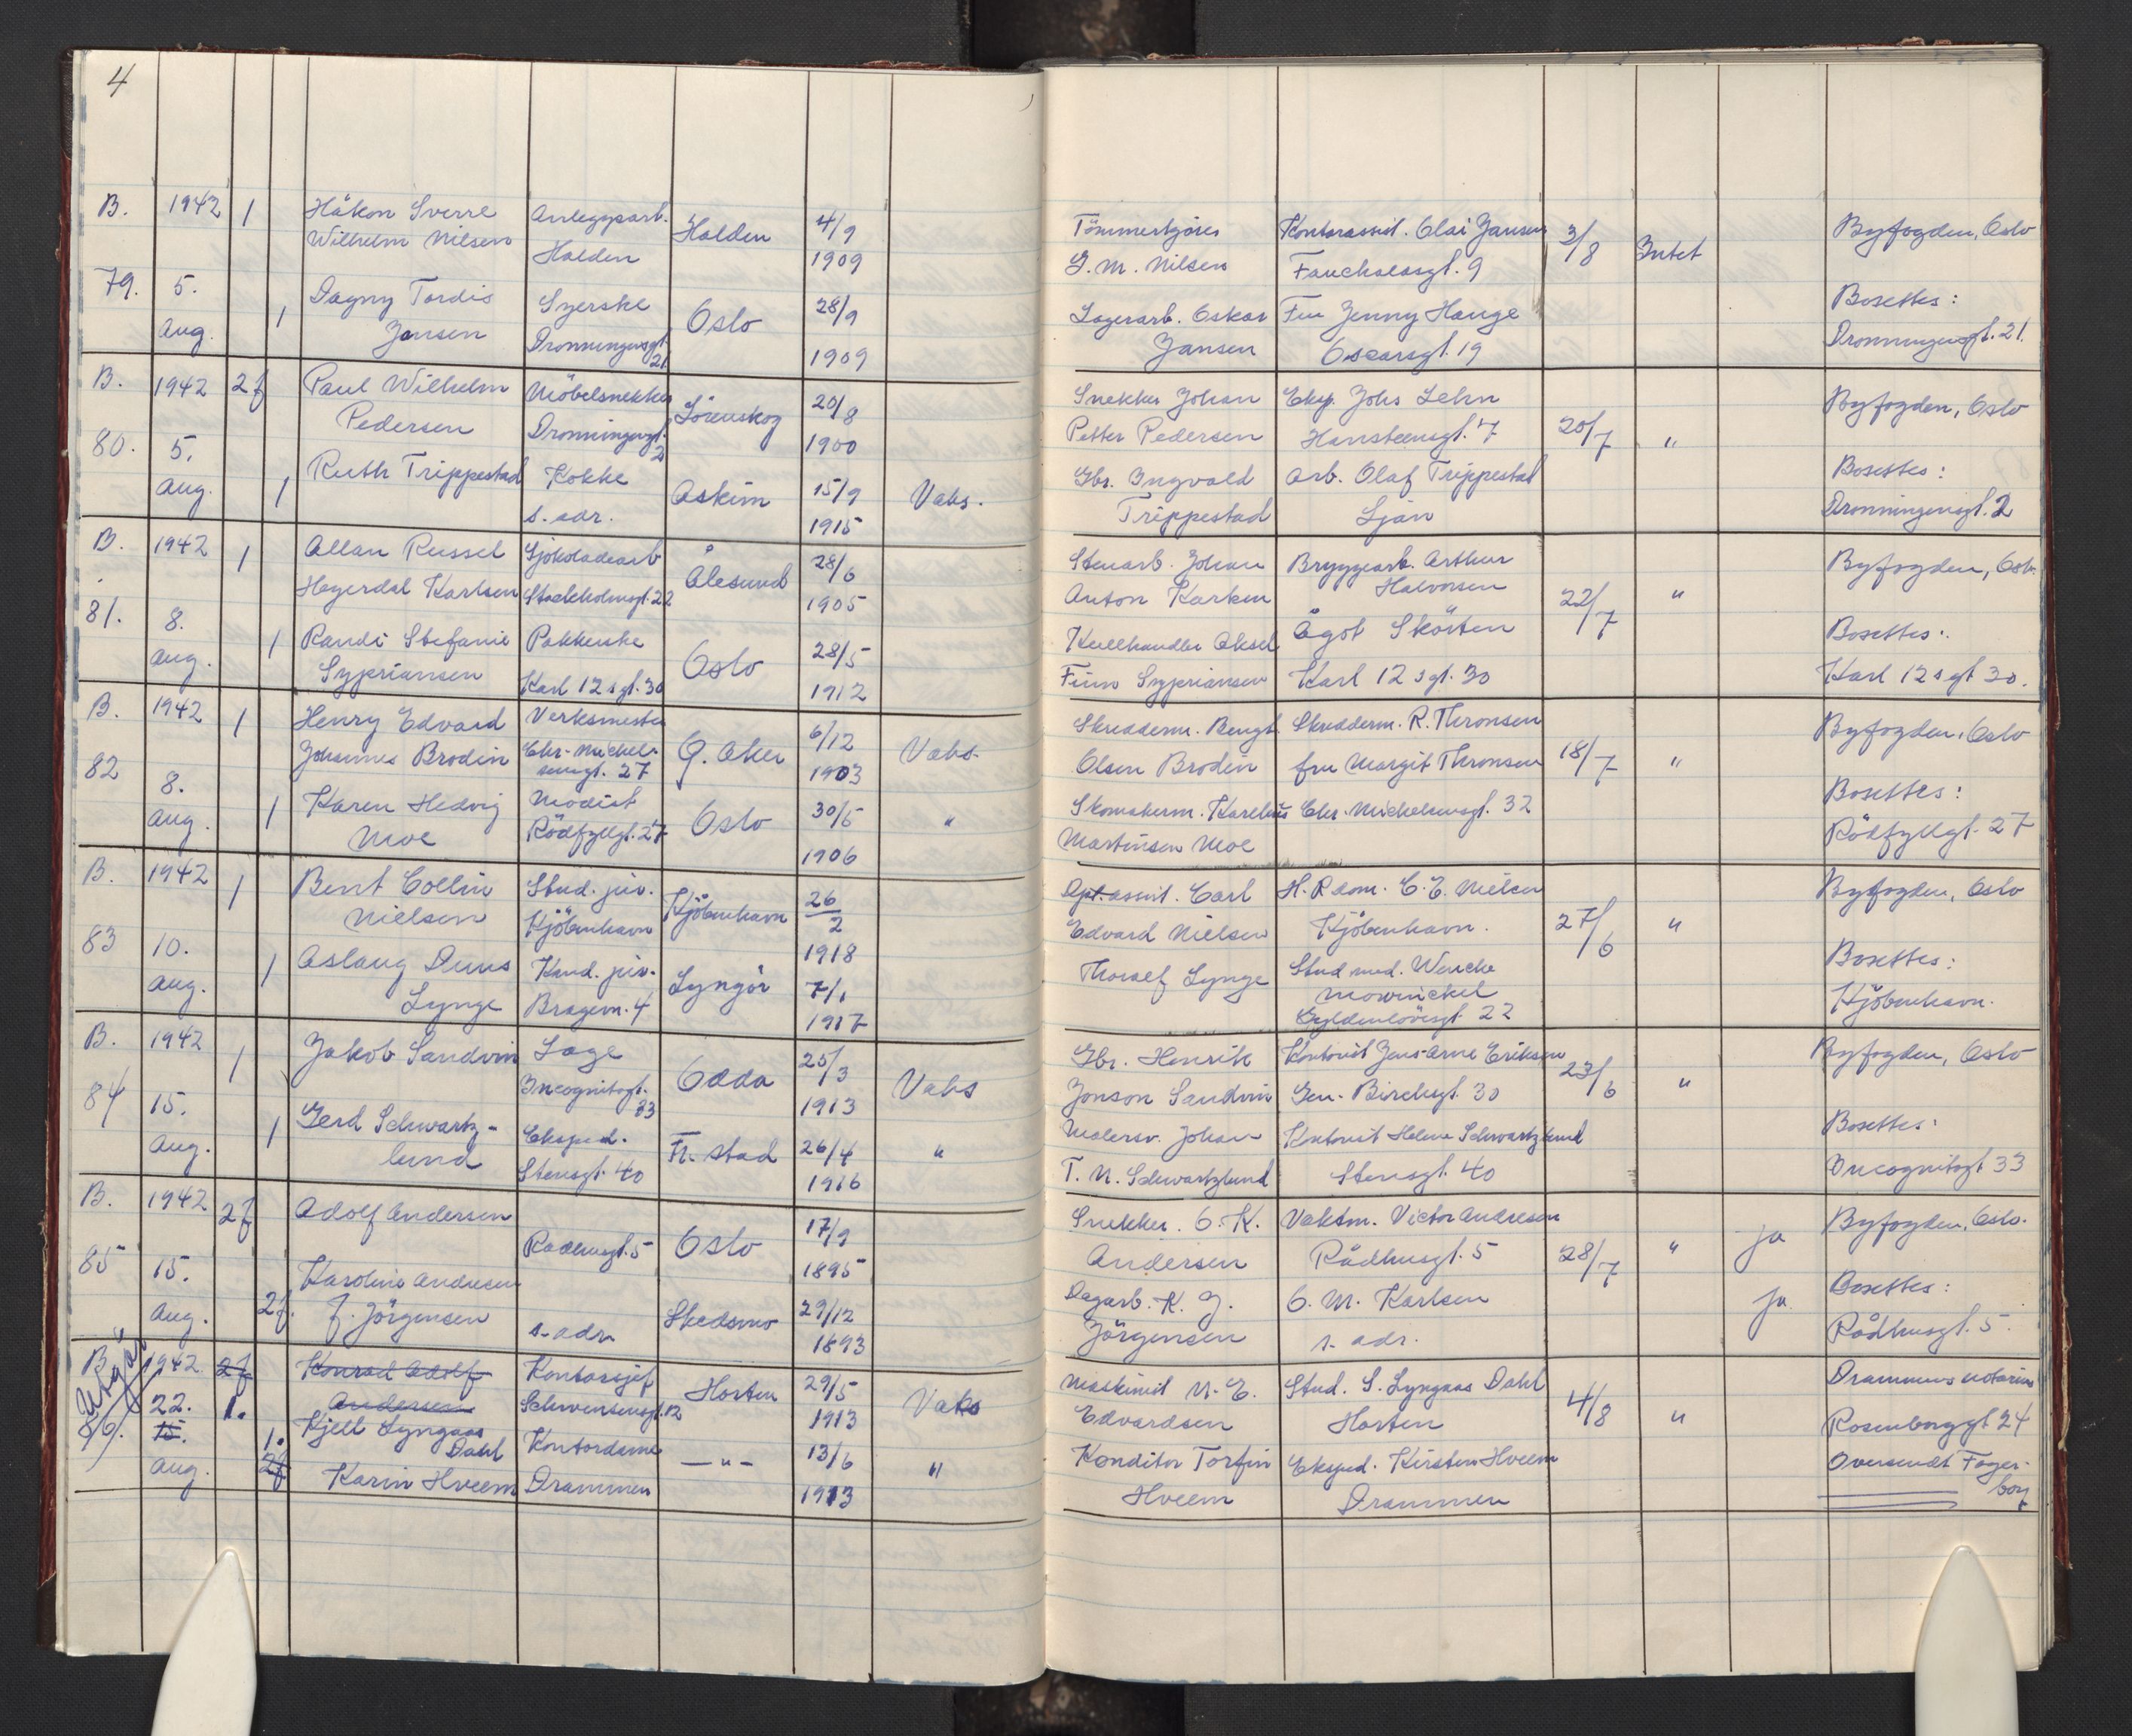 4
B. 1942 1 Håkon Sverre Anleggsarb. Halden 4/9 Tömmerkjörer Kontorassist. Olai Jansen 3/8 Intet Byfogden, Oslo
Wilhelm Nilsen Halden 1909 G. M. Nilsen Fauchaldsgt. 9
79. 5. Dagny Tordis Syerske Oslo 28/9 Lagerarb. Oskar Fru Jenny Hauge Bosettes:
Aug. 1 Jansen Dronningensgt. 21 1909 Jansen Oscarsgt. 19 Dronningensgt. 21.
B. 1942 2f Paul Wilhelm Möbelsnekker Lörenskog 20/8 Snekker Johan Eksp. Johs Lehn 20/7 " Byfogden, Oslo
Pedersen Dronningensgt. 2 1900 Petter Pedersen Hansteensgt. 7
80. 5. Ruth Trippestad Kokke Askim 15/9 Vaks. Gbr. Ingvald Arb. Olaf Trippestad Bosettes:
Aug. 1 s. adr. 1915 Trippestad Ljan Dronningensgt. 2
B. 1942 1 Allan Russel Sjokoladearb Ålesund 28/6 Stenarb. Johan Bryggearb. Arthur Halvorsen 22/7 " Byfogden, Oslo
Hegerdal Karlsen Stockholmsgt. 22 1905 Anton Karlsen
81. 8. Randi Stefanie Pakkerske Oslo 28/5 Kullhandler Aksel Ågot Skörten Bosettes:
Aug. 1 Sypriansen Karl 12s gt. 30 1912 Finn Sypriansen Karl 12 sgt. 30 Karl 12 sgt 30.
B. 1942 1 Henry Edvard Verksmester Ö. Aker 6/12 Vaks. Skredderm. Bengt Skredderm. R. Thronsen 18/7 " Byfogden, Oslo
Johannes Brodin Chr. Michelsensgt. 27 1903 Olsen Brodin fru Margit Thronsen
82 8. Karen Hedvig Modist Oslo 30/5 " Skomakerm. Karelius Chr. Michelsensgt. 32 Bosettes:
Aug. 1 Moe Rödfyllgt. 27 1906 Martinsen Moe Rödfyllgt. 27
B. 1942 1 Bent Collin Stud. jur. Kjöbenhavn 26/2 Dpt. assist. Carl H. R dom. C. E. Nielsen 27/6 " Byfogden, Oslo
Nielsen Kjöbenhavn 1918 Edvard Nielsen Kjöbenhavn.
83 10. Aslaug Duus Kand. jur. Lyngör 7/1 Thoralf Lynge Stud med. Wenche Mowinckel Bosettes:
Aug. 1 Lynge Bragevn. 4 1917 Gyldenlövesgt. 22 Kjöbenhavn.
B. 1942 1 Jakob Sandvin Lege Odda 25/3 Vaks Gbr. Henrik Kontorist Jens-Arne Eriksen 23/6 " Byfogden, Oslo
Incognitogt. 33 1913 Jonson Sandvin Gen. Birchsgt. 30
84 15. Gerd Schwartz- Eksped. Fr. stad 26/4 " Malersv. Johan Kontorist Helene Schwartzlund Bosettes:
Aug. 1 lund Stensgt. 40 1916 T. N. Schwartzlund Stensgt. 40 Incognitogt 33
B. 1942 2f Adolf Andersen Rådhusgt. 5 Oslo 17/9 Snekker. O. K. Vaktm. Victor Andresen 28/7 " ja Byfogden, Oslo.
1895 Andersen Rådhusgt. 5
85 15. Karoline Andresen Skedsmo 29/12 Dagarb. K. J. O. M. Karlsen ja. Bosettes:
Aug. 2f. f. Jörgensen s. adr. 1893 Jörgensen s. adr. Rådhusgt. 5.
Utgår
B 1942 2f Konrad Adolf Kontorsjef Horten 29/5 Vaks Maskinist N. E. Stud. S. Lyngaas Dahl 4/8 " Drammens notarius
22. 1. Andersen Schwensensgt. 12 1913 Edvardsen Horten Rosenborggt 24
86. 15. 1. Kjell Lyngaas Dahl Kontordame —"— 13/6 " Konditor Torfin Eksped. Kirsten Hveem Oversendt Fager-
Aug. 2f Karin Hveem Drammen 1913 Hveem Drammen borg